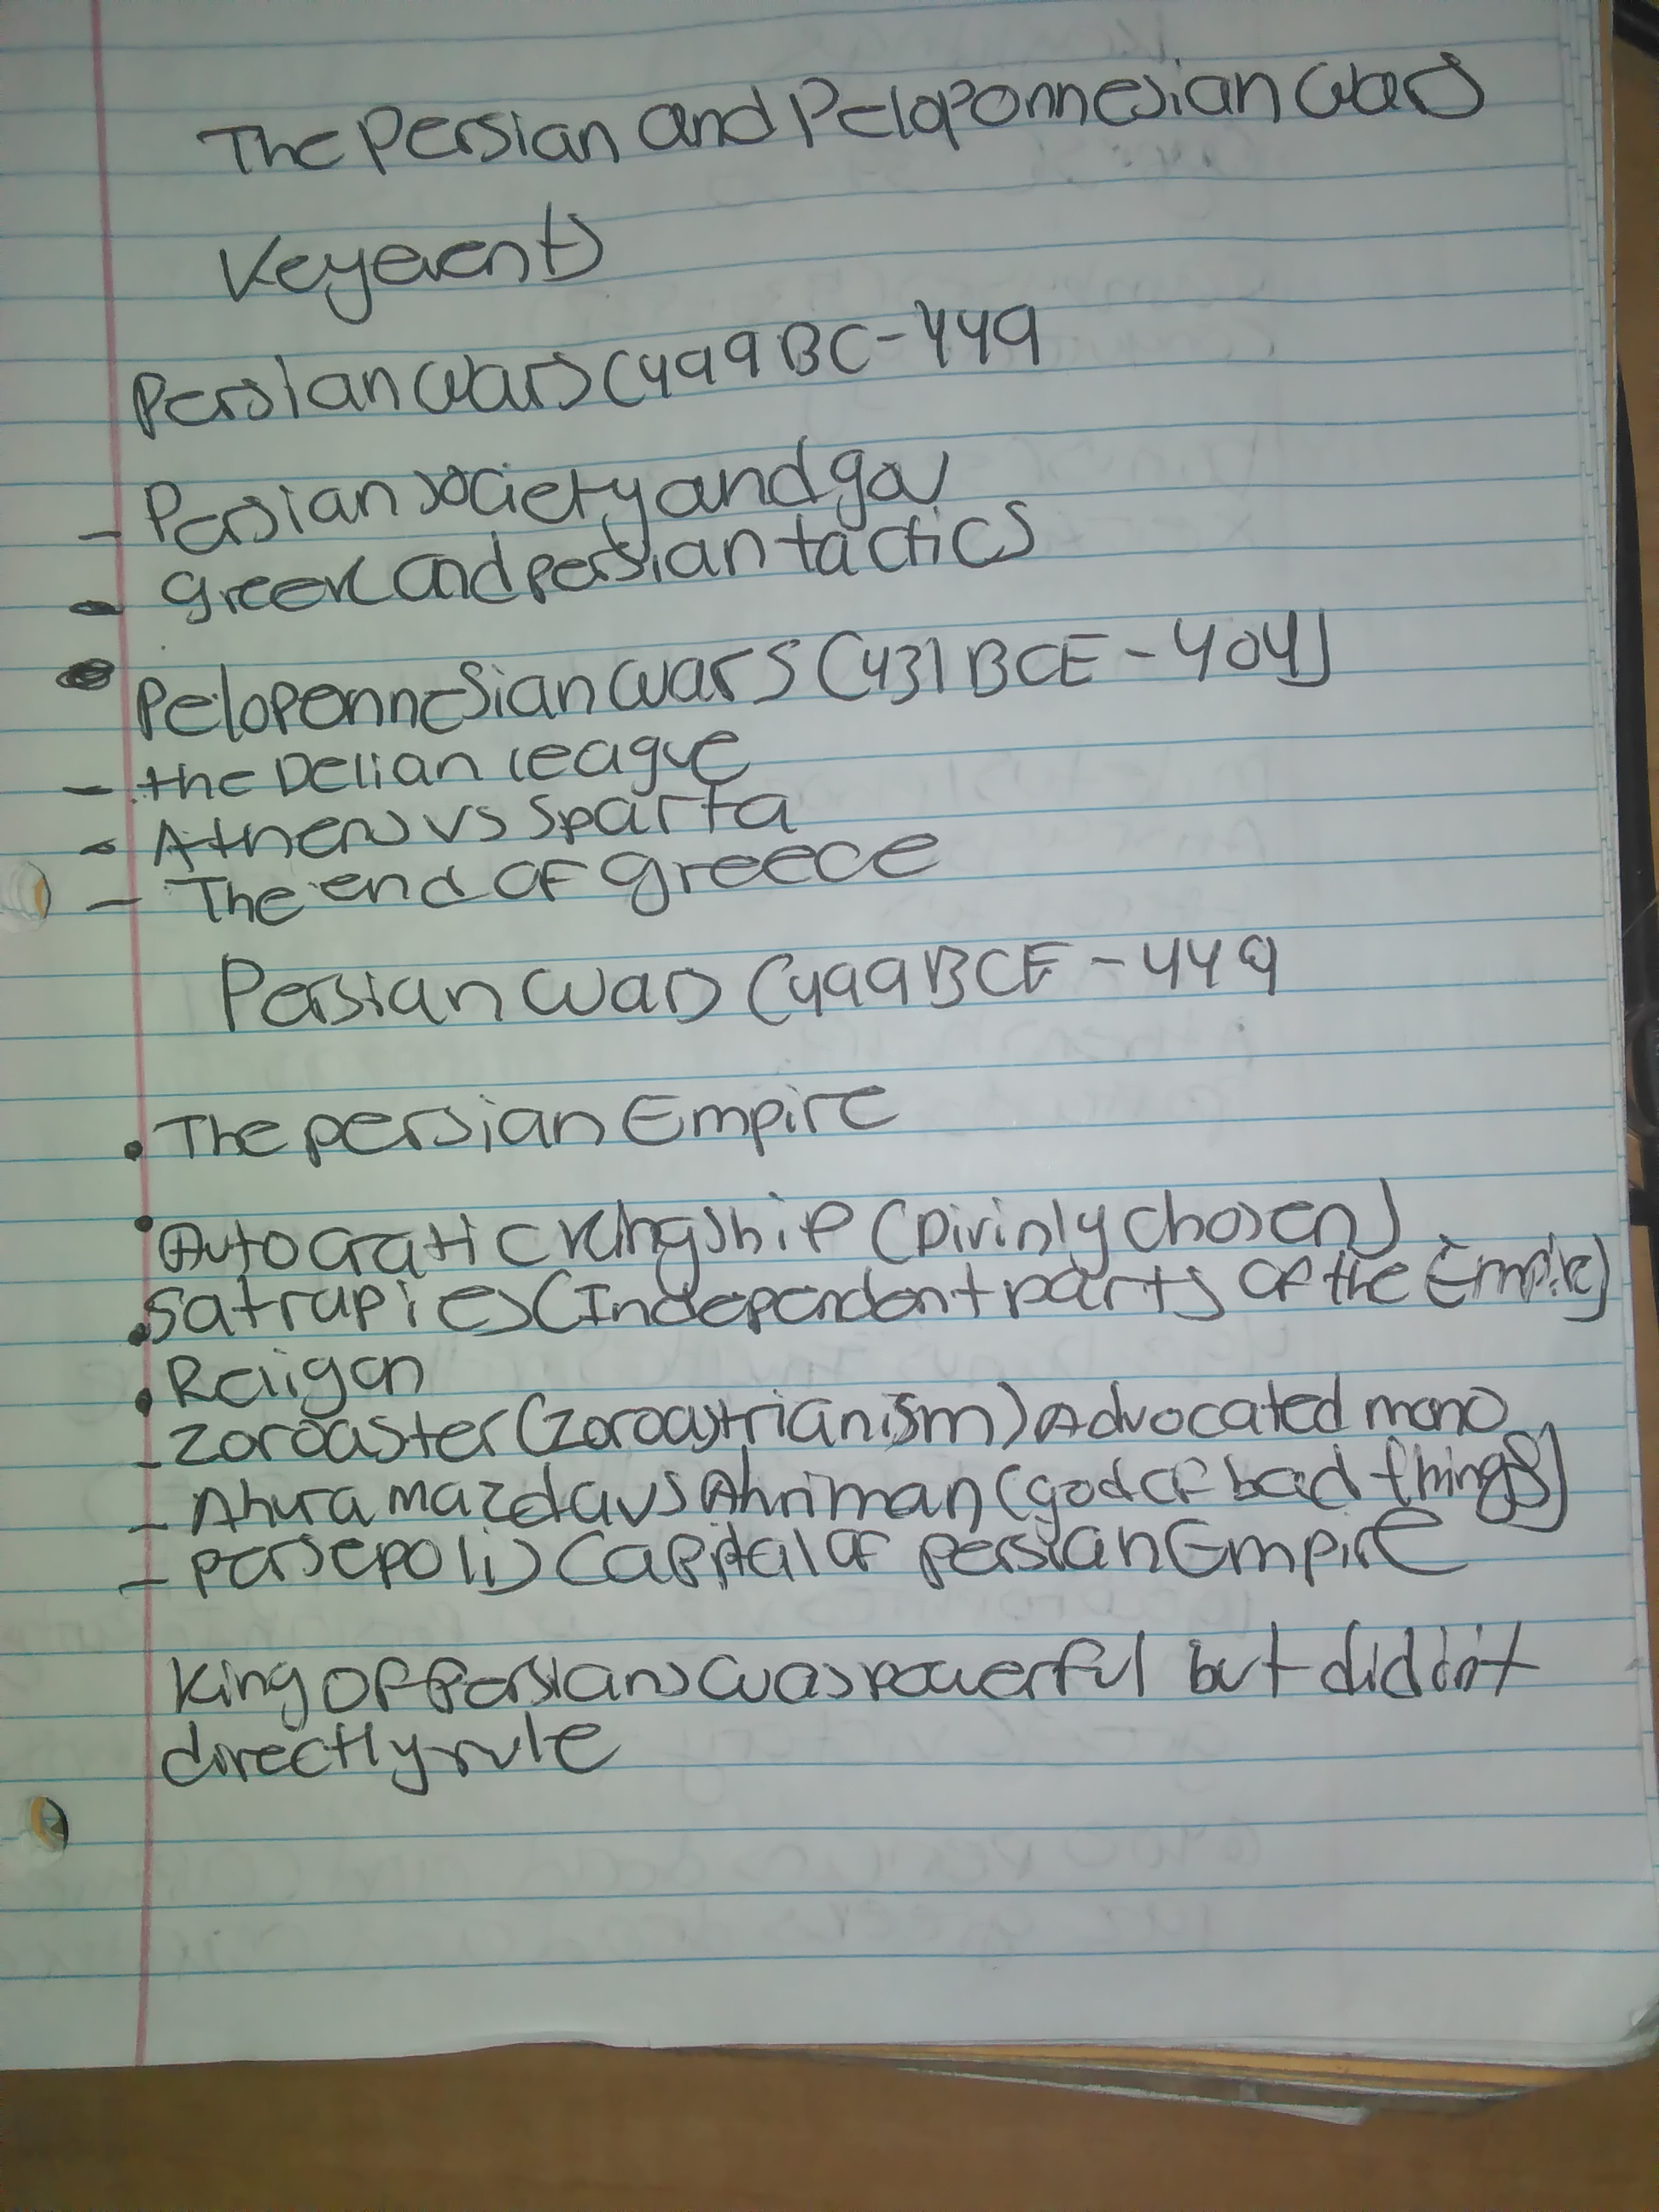 The Persian and Peloponnesian Wars
Key events
Persian Wars (499 BC - 449
- Persian society and gov
- Greek and persian tactics
• Peloponnesian Wars (431 BCE - 404)
- the Delian league
- Athens vs Sparta
- The end of greece
Persian Wars (499 BCE - 449
• The persian Empire
• Autocratic Kingship (Divinly chosen)
• Satrapies (Independent parts of the Empire)
• Religon
- Zoroaster (Zoroastrianism) Advocated mono
- Ahura mazda vs Ahriman (god of bad things)
- persepolis Capital of persian Empire
King of Persians was powerful but did not
directly rule